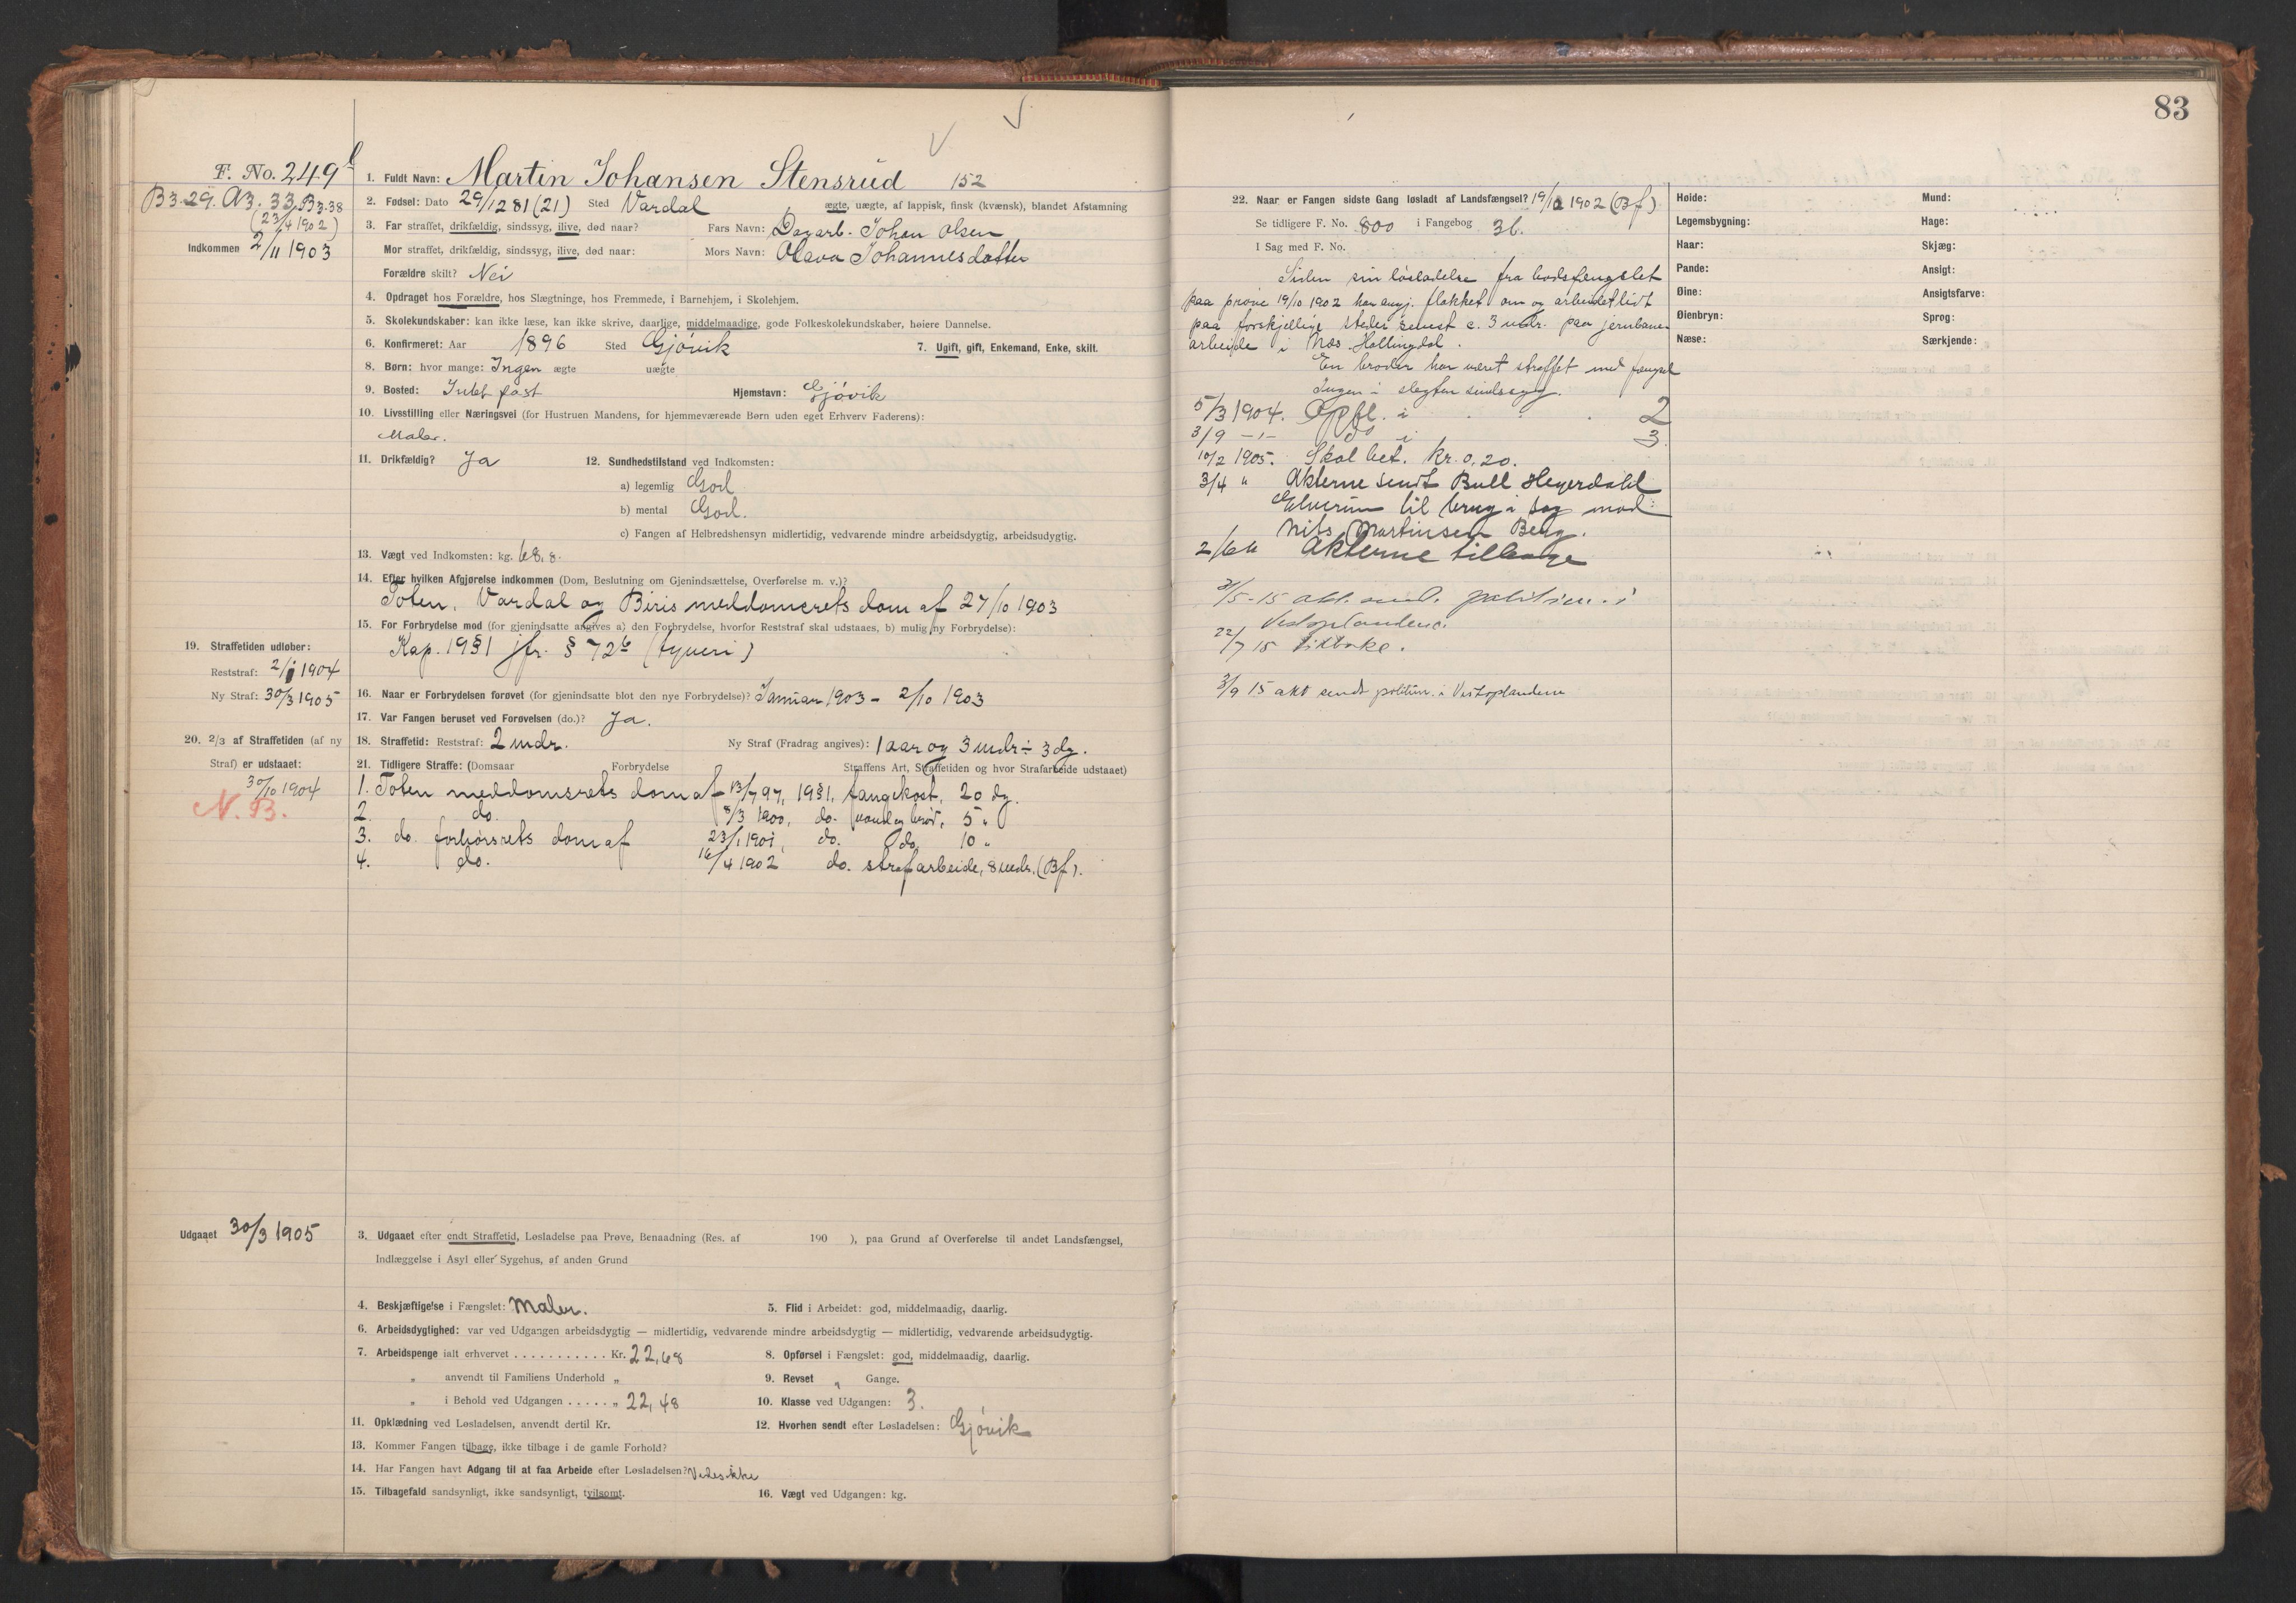 83
F. No. 249b
B3.29. A3. 33. B3.38
(23/4 1902)
Indkommen 2/11 1903
1. Fuldt Navn: Martin Johansen Stensrud 152
2. Fødsel: Dato 29/12 81 (21) Sted Vardal ægte, uægte, af lappisk, finsk (kvænsk), blandet Afstamning
3. Far straffet, drikfældig, sindssyg, ilive, død naar? Fars Navn: Dagarb. Johan Olsen
Mor straffet, drikfældig, sindssyg, ilive, død naar: Mors Navn: Olava Johannesdatter
Forældre skilt? Nei
4. Opdraget hos Forældre, hos Slægtninge, hos Fremmede, i Barnehjem, i Skolehjem.
5. Skolekundskaber: kan ikke læse, kan ikke skrive, daarlige, middelmaadige, gode Folkeskolekundskaber, høiere Dannelse.
6. Konfirmeret: Aar 1896 Sted Gjövik 7. Ugift, gift, Enkemand, Enke, skilt.
8. Børn: hvor mange: Ingen ægte uægte
9. Bosted: Intet fast Hjemstavn: Gjövik
10. Livsstilling eller Næringsvei (for Hustruen Mandens, for hjemmeværende Børn uden eget Erhverv Faderens):
Maler.
11. Drikfældig? Ja 12. Sundhedstilstand ved Indkomsten:
a) legemlig God
b) mental God.
c) Fangen af Helbredshensyn midlertidig, vedvarende mindre arbeidsdygtig, arbeidsudygtig.
13. Vægt ved Indkomsten: kg. 68,8.
14. Efter hvilken Afgjørelse indkommen (Dom, Beslutning om Gjenindsættelse, Overførelse m. v.)?
Toten, Vardal og Biris meddomsrets dom af 27/10 1903
15. For Forbrydelse mod (for gjenindsatte angives a) den Forbrydelse, hvorfor Reststraf skal udstaaes, b) mulig ny Forbrydelse):
Kap. 19 § 1 jfr. § 72b (tyveri)
19. Straffetiden udløber:
Reststraf: 2/1 1904
Ny Straf: 30/3 1905
16. Naar er Forbrydelsen forøvet (for gjenindsatte blot den nye Forbrydelse)? Januar 1903 - 2/10 1903
17. Var Fangen beruset ved Forøvelsen (do.)? Ja.
20. 2/3 af Straffetiden (af ny
Straf) er udstaaet:
30/10 1904
N. B.
18. Straffetid: Reststraf: 2 mdr. Ny Straf (Fradrag angives): 1 aar og 3 mdr ÷ 3 dg.
21. Tidligere Straffe: (Domsaar Forbrydelse Straffens Art, Straffetiden og hvor Strafarbeide udstaaet)
1. Toten meddomsrets dom af 13/7 97, 19 § 1, fangekost, 20 dg.
2. do. 8/3 1900, do. vand og brød, 5 "
3. do. forhørsrets dom af 23/1 1901, do. do. 10 "
4. do. 16/4 1902 do. strafarbeide, 8 mdr. (Bf).
Udgaaet 30/3 1905
3. Udgaaet efter endt Straffetid, Løsladelse paa Prøve, Benaadning (Res. af 190 ), paa Grund af Overførelse til andet Landsfængsel,
Indlæggelse i Asyl eller Sygehus, af anden Grund
4. Beskjæftigelse i Fængslet: Maler. 5. Flid i Arbeidet: god, middelmaadig, daarlig.
6. Arbeidsdygtighed: var ved Udgangen arbeidsdygtig — midlertidig, vedvarende mindre arbeidsdygtig — midlertidig, vedvarende arbeidsudygtig.
7. Arbeidspenge ialt erhvervet . . . . . . . . . . . Kr. 22,68 8. Opførsel i Fængslet: god, middelmaadig, daarlig.
" anvendt til Familiens Underhold " 9. Revset " Gange.
" i Behold ved Udgangen . . . . . " 22,48 10. Klasse ved Udgangen: 3.
11. Opklædning ved Løsladelsen, anvendt dertil Kr. 12. Hvorhen sendt efter Løsladelsen: Gjövik
13. Kommer Fangen tilbage, ikke tilbage i de gamle Forhold?
14. Har Fangen havt Adgang til at faa Arbeide efter Løsladelsen? Vides ikke
15. Tilbagefald sandsynligt, ikke sandsynligt, tvilsomt. 16. Vægt ved Udgangen: kg.
22. Naar er Fangen sidste Gang løsladt af Landsfængsel? 19/10 1902 (Bf)
Se tidligere F. No. 800 i Fangebog 36.
I Sag med F. No.
Siden sin løsladelse fra bodsfængslet
paa prøve 19/10 1902 har angj. flakket om og arbeidet lidt
paa forskjellige steder senest c. 3 mdr. paa jernbane
arbeide i Næs Hallingdal.
En broder har været straffet med fængsel
Ingen i slegten sindssyg.
5/3 1904. Opfl. i 2
3/9 -"- do i 3.
10/2 1905. Skol bet. kr. 0,20.
3/4 " Akterne sendt Bull Heyerdahl
Elverum til brug i sag mod:
Nils Martinsen Berg.
2/6 " Akterne tilbage
31/5-15 akt. sendt. politim. i
Vestoplandene.
22/7 15 tilbake.
3/9 15 akt sendt politim. i Vestoplandene
Høide: Mund:
Legemsbygning: Hage:
Haar: Skjæg:
Pande: Ansigt:
Øine: Ansigtsfarve:
Øienbryn: Sprog:
Næse: Særkjende: